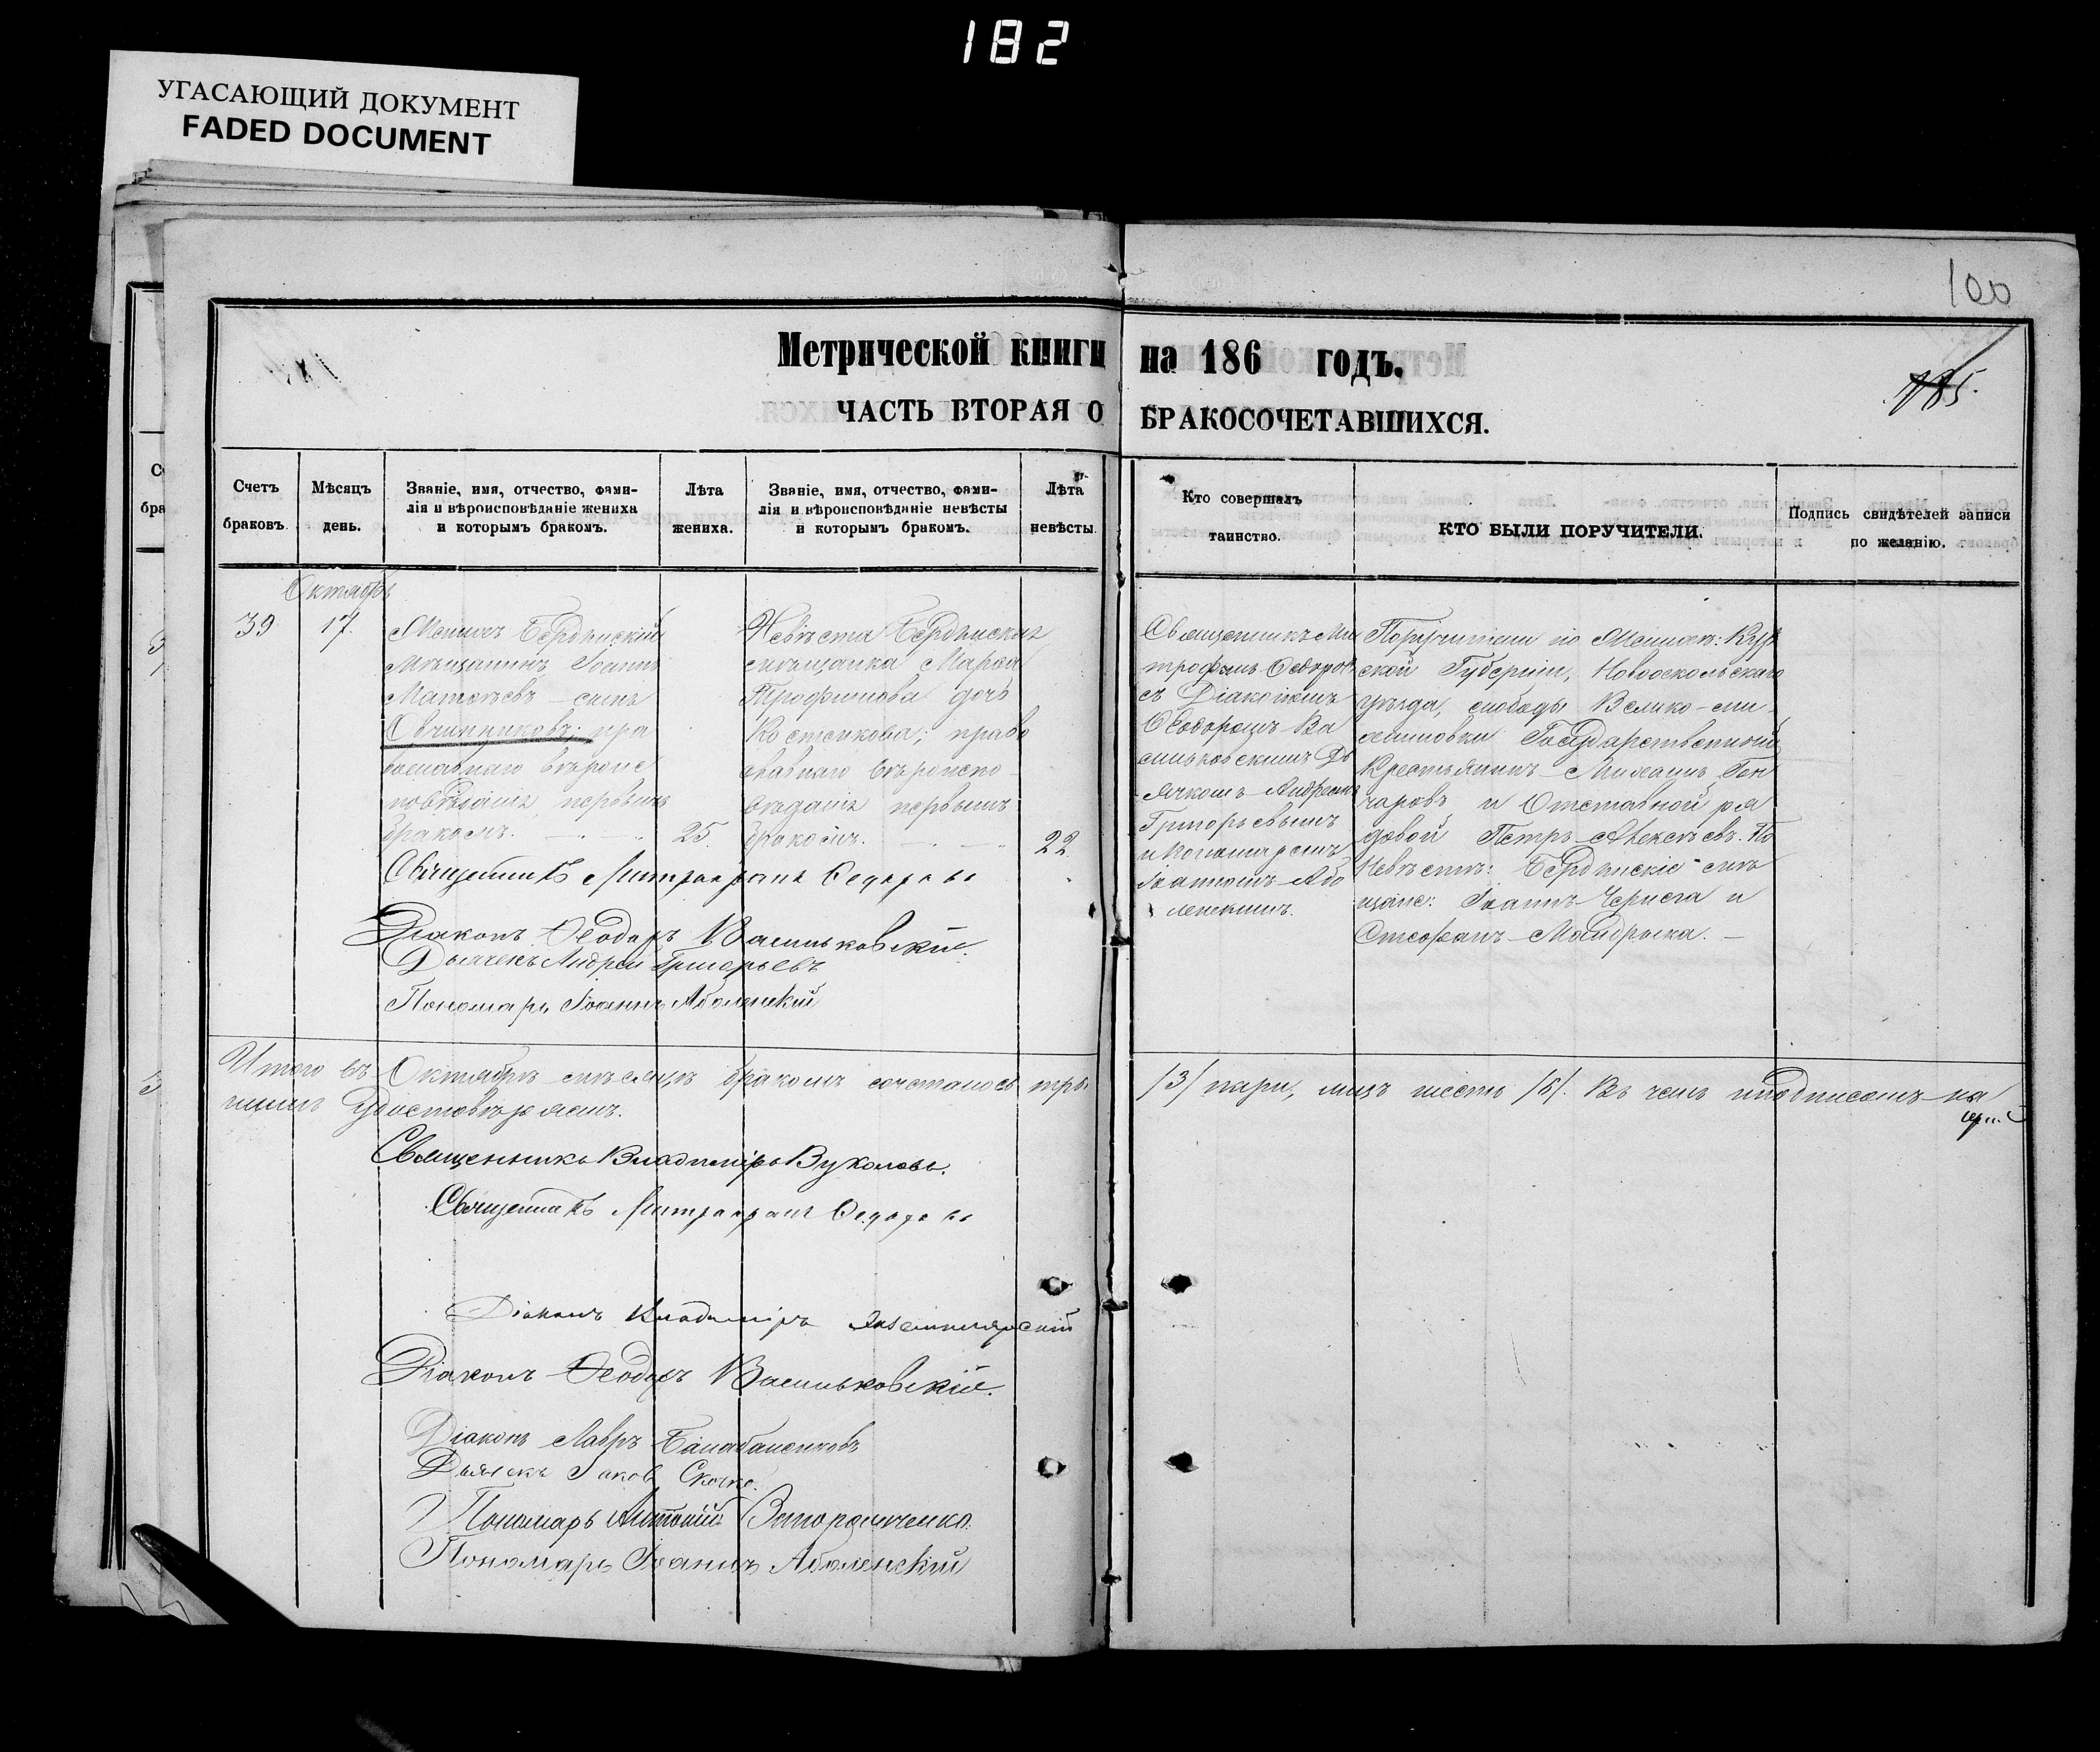 182
УГАСАЮЩИЙ ДОКУМЕНТ
FADED DOCUMENT
100
Метрической книги на 186 годъ.
185.
ЧАСТЬ ВТОРАЯ О БРАКОСОЧЕТАВШИХСЯ.
Счетъ браковъ.
Мѣсяцъ день.
Званіе, имя, отчество, фами-
лія и вѣроисповѣданіе жениха
и которымъ бракомъ.
Лѣта жениха.
Званіе, имя, отчество, фами-
лія и вѣроисповѣданіе невѣсты
и которымъ бракомъ.
Лѣта невѣсты.
Кто совершалъ
таинство.
КТО БЫЛИ ПОРУЧИТЕЛИ.
Подпись свидѣтелей записи
по желанію.
Октябрь
39
17.
Женихъ Бердянскій
мѣщанинъ Іоаннъ
Матѳеевъ сынъ
Овчинниковъ; пра
вославнаго вѣроис
повѣданія первымъ
бракомъ.
25.
Невѣста Бердянская
мѣщанка Марѳа
Трофимова дочь
Костенкова; право
славнаго вѣроиспо
вѣданія первымъ
бракомъ.
22.
Священникъ Ми
трофанъ Ѳедоровъ
съ Діакономъ
Ѳеодоромъ Ва
сильковскимъ Дь
ячкомъ Андреемъ
Григорьевымъ
и Пономаремъ
Іоанномъ Або
ленскимъ.
Поручители по Женихѣ: Кур
ской Губерніи, Новооскольскаго
уѣзда, слободы Велико-ми
хайловки Государственный
Крестьянинъ Михаилъ Гон
чаровъ и Отставной ря
довой Петръ Алексѣевъ. По
Невѣстѣ: Бердянскіе мѣ
щане: Іоаннъ Черныга и
Стефанъ Мандрыка.
Священникъ Митрофанъ Ѳедоровъ
Діаконъ Ѳеодоръ Васильковскій.
Дьячекъ Андрей Григорьевъ
Пономарь Іоаннъ Аболенскій
Итого въ Октябрѣ мѣсяцѣ бракомъ сочеталось три /3/ пары, лицъ шесть /6/. Въ чемъ подписомъ на
шимъ удостовѣряемъ.
Священникъ Владиміръ Вуколовъ.
Священникъ Митрофанъ Ѳедоровъ
Діаконъ Владиміръ
Діаконъ Ѳеодоръ Васильковскій.
Діаконъ Лавръ Балабаненковъ
Дьячекъ Іаковъ Скочко.
Пономарь Антоній
Пономарь Іоаннъ Аболенскій